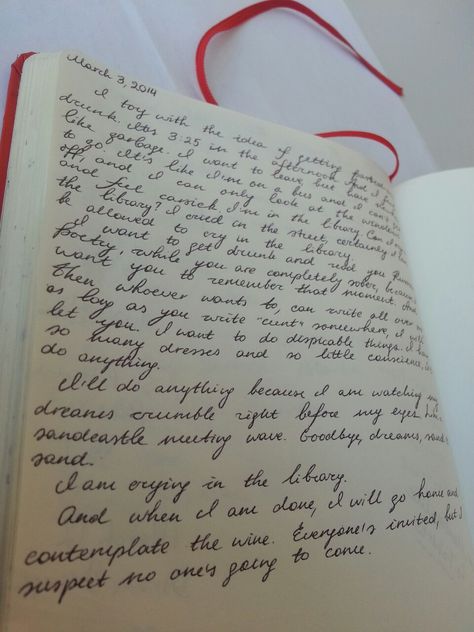 March 3, 2014
I toy with the idea of getting
drunk. It's 3:25 in the afternoon and I
like garbage. I want to leave but have
to go. It's like I'm on a bus and I can't
off, and I can only look at the
and feel carsick. I'm in the library. Can I
the library? I cried in the street, certainly I
be allowed to cry in the library.
I want to get drunk and read you
poetry, while you are completely sober, because
want you to remember that moment.
Then, whoever wants to, can write all over
as long as you write "cunt" somewhere, I will
let you. I want to do despicable things. I have
so many dresses and so little conscience,
do anything.
I'll do anything because I am watching my
dreams crumble right before my eyes like
sandcastle meeting wave. Goodbye, dreams,
sand.
I am crying in the library.
And when I am done, I will go home and
contemplate the wine. Everyone's invited, but I
suspect no one's going to come.